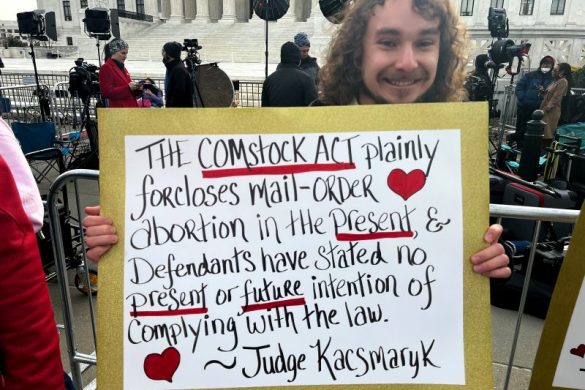 THE COMSTOCK ACT plainly
forcloses mail-ORDER
abortion in the Present, &
Defendants have stated no
present or future intention of
complying with the law.
~ Judge Kacsmaryk